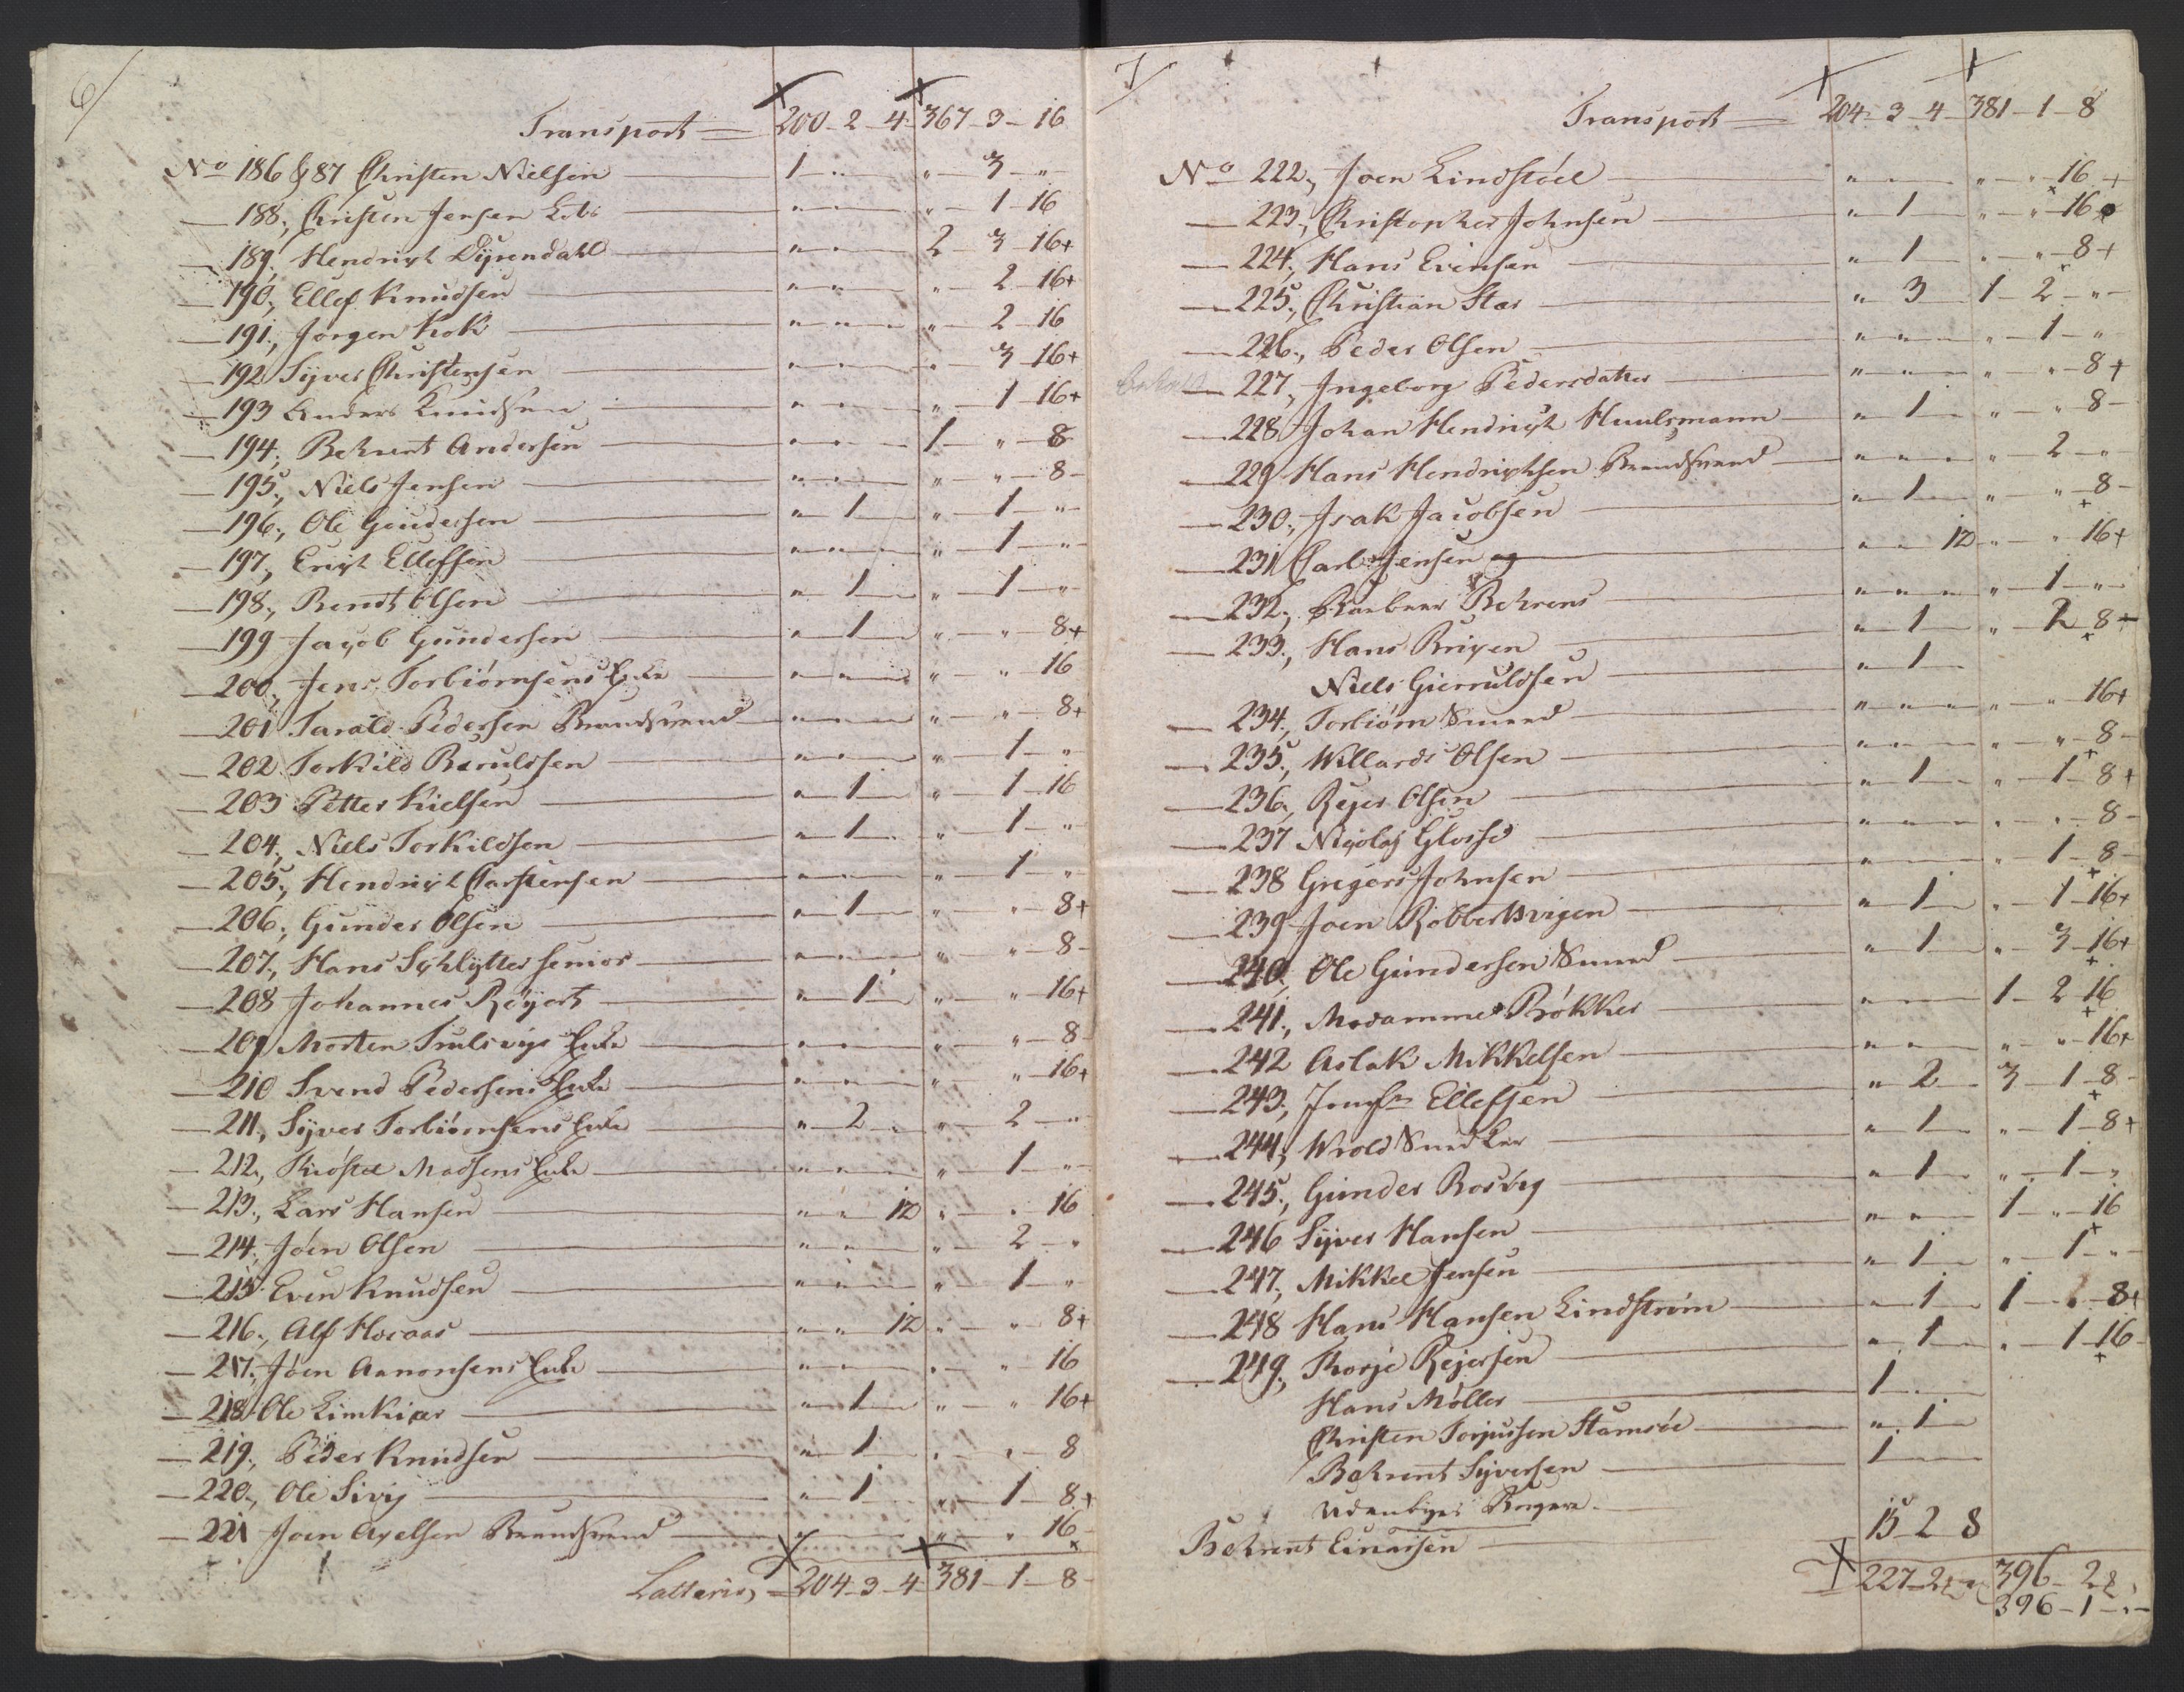 6/
Transport = 200 - 2 - 4 - 367 - 3 - 16
No 186 & 87 Christen Nielsen — 1 " " " - 3 - "
— 188., Christen Jensen — " " " " - 1 - 16
— 189., Hendrich Dÿpendahl — " " " 2 - 3 - 16+
— 190., Ellef Knudsen — " " " " - 2 - 16+
— 191., Jørgen Kok — " " " " - 2 - 16
— 192 Sÿver Christensen — " " " " - 3 - 16+
— 193 Anders Knudsen — " " " " - 1 - 16+
— 194., Behrent Andersen — " " " 1 - " - 8
— 195., Niels Jensen — " " " " - " - 8 -
— 196., Ole Gundersen — " 1 — " - 1 - "
— 197., Erich Ellefsen — " " " " - 1 - "
— 198., Bendt Olsen — " 1 — " - 1 - "
— 199 Jacob Gundersen — " 1 — " - " - 8+
— 200., Jens Torbiørnsens Enke — " " " " - " 16
— 201 Tarald Pedersen Brandsvend — " " " " - " - 8+
— 202 Torkild Barulsen — " " " " - 1 - "
— 203 Petter Kielsen — " 1 — " - 1 - 16
— 204., Niels Torkildsen — " 1 — " - 1 - "
— 205., Hendrich Carstensen — " " " " - 1 - "
— 206., Gunder Olsen — " 1 — " - " - 8+
— 207., Hans Schlÿtter senior — " " " " - " - 8 -
— 208 Johannes Røÿert — " 1 — " - " - 16+
— 209 Morten Trulsvigs Enke — " " " " - " - 8
— 210 Svend Pedersens Enke — " " " " - " - 16+
— 211., Sÿver Torbiørnsens Enke — " 2 — " - 2 - "
— 212., Kiøstel Madsens Enke — " " " " - 1 - "
— 213., Lars Hansen — " " 12 " - " 16
— 214., Jøen Olsen — " " " " - 2 - "
— 215 Even Knudsen — " " " " - 1 - "
— 216., Alf Horaas — " " 12 " - " - 8+
— 217., Jøen Aanonsens Enke — " " " " - " 16
— 218 Ole Limkiær — " 1 — " - " 16+
— 219., Peder Knudsen — " 1 — " - " 8
— 220., Ole Sivig — " 1 — " - 1 - 8+
— 221 Joen Axelsen Brandsvend — " " " " - " 16 -
Latteris, = 204 - 3 - 4 - 381 - 1 - 8 -
7/
Transport = 204 - 3 - 4 - 381 - 1 - 8
No 222., Joen Lindstöel — " " " " - " 16 +
— 223., Christopher Johnsen — " 1 — " - " 16
— 224., Hans Evensen — " 1 — " - " - 8 +
— 225., Christian Stær — " 3 — 1 - 2 - "
— 226., Peder Olsen — " " " " - 1 - "
— 227., Ingeborg Pedersdatter — " " " " - " - 8 +
— 228 Johan Hendrich Huulsmann — " 1 — " - " - 8 -
— 229 Hans Hendrichsen Brandsvend — " " " " - 2 - "
— 230., Isak Jacobsen — " 1 — " - " - 8 -
— 231 Carl Jensen — " " 12 " - " 16+
— 232., Behrens — " " " " - 1 - "
— 233., Hans Bricen — " 1 — " - 2 - 8
Niels Gierruldsen — " 1 —
— 234., Torbiørn Smeed — " " " " - " 16+
— 235., Willard Olsen — " " " " - " - 8 -
— 236., Reÿer Olsen — " 1 — " - 1 - 8 +
— 237 Nicolaj — " " " " - " 8 -
— 238 Gregers Johnsen — " " " " - 1 - 8 -
— 239 Joen Robbertsvigen — " 1 — " - 1 - 16+
— 240., Ole Gundersen Smeed — " 1 — " - 3 - 16+
— 241., Madamme Bøkker — " " " 1 - 2 - 16
— 242 Aslak Mikkelsen — " " " " - " - 16+
— 243., Jomfr Ellefsen — " 2 — 3 - 1 - 8 -
— 244., Wrold — " 1 — " - 1 - 8+
— 245., Gunder Rosvig — " 1 — " - 1 - "
— 246 Sÿver Hansen — " " " 1 - " - 16
— 247., Mikkel Jensen — " 1 — " - 1 - "
— 248 Hans Hansen Lindstrøm — " 1 — 1 - " - 8+
— 249., Thorje Reijersen — " 1 — " - 1 - 16 -
Hans Møller — 1 —
Christen Torjussen Stamsöe — " 1 —
Behrent Sÿversen — 1 —
Udenbÿes Borgere —
Behrent Einersen — 15 - 2 8
227 - 2 396 - 2
396 - 1 - "